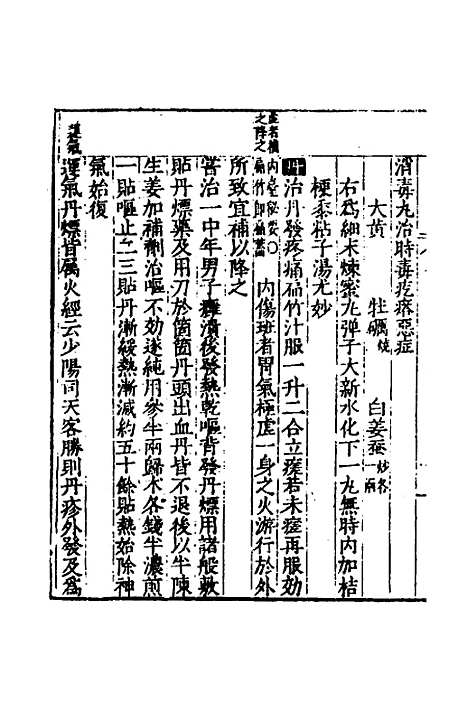 消毒丸治時毒疙瘩惡症
大黄 牡礪煅 白姜蚕炒各一兩
右爲細末煉蜜丸弹子大新水化下一丸無時内加桔
梗黍粘子湯尤妙
虚者補之降之
丹治丹發疼痛萹竹汁服一升二合立瘥若未瘥再服効
内傷班者胃氣極虚一身之火游行於外
所致宜補以降之
嘗治一中年男子癰潰後發熱乾嘔背發丹熛用諸般敷
貼丹熛藥及用刀於箇箇丹頭出血丹皆不退後以半陳
生姜加補劑治嘔不効遂純用參半兩歸术各錢半濃煎
一貼嘔止二三貼丹漸緩熱漸減約五十餘貼熱始除神
氣始復
運氣丹熛皆屬火經云少陽司天客勝則丹疹外發及爲